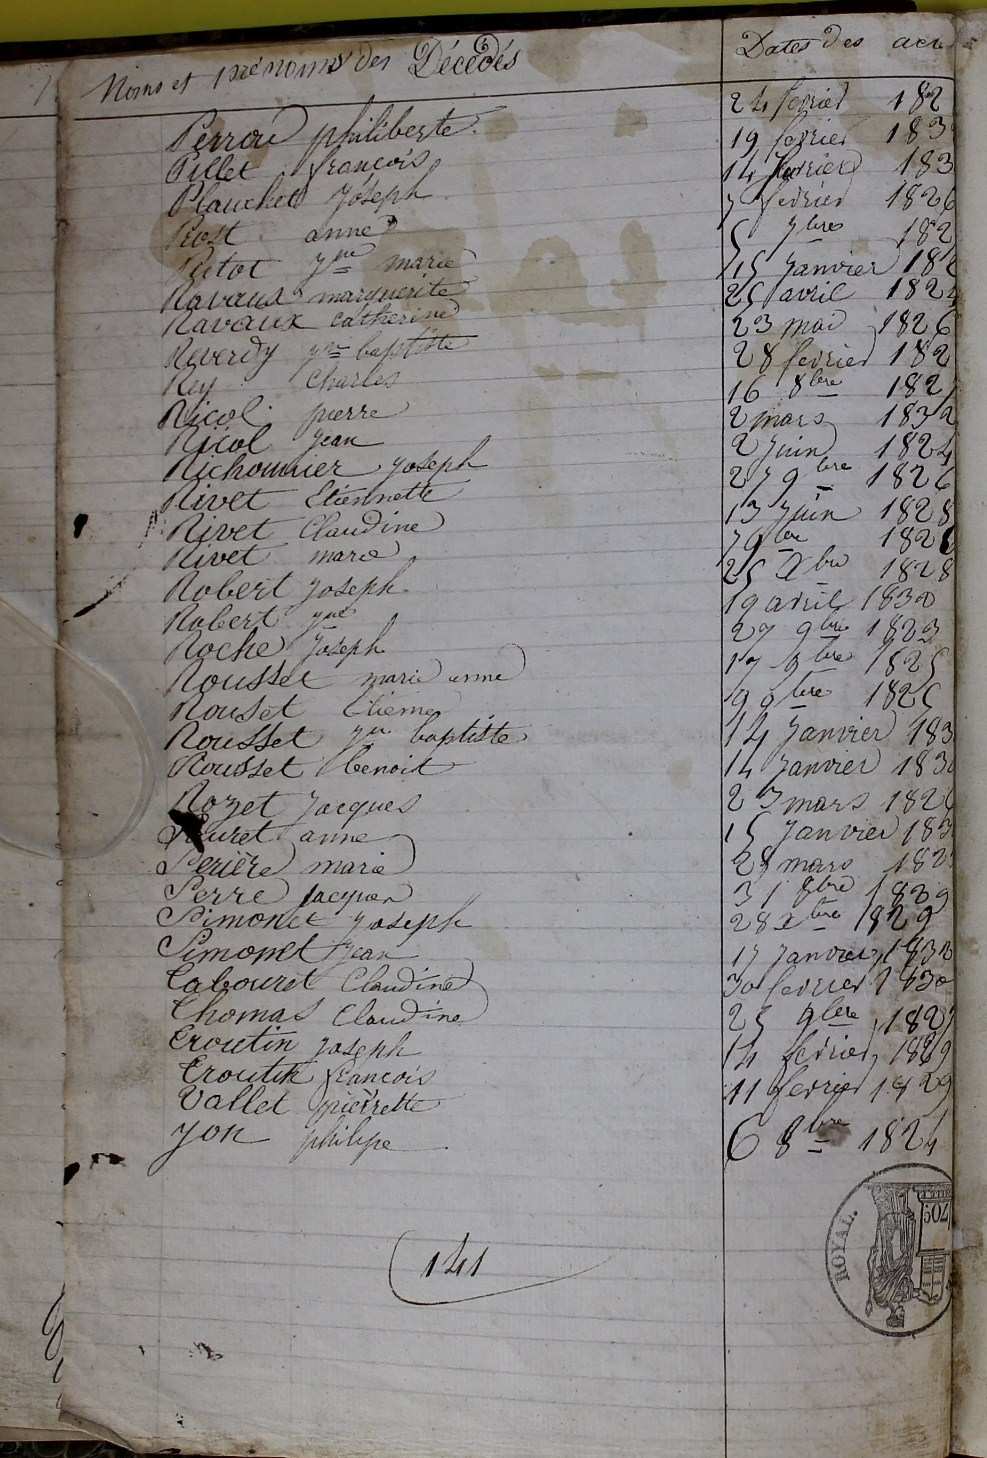 Noms et prénoms des Décédés Dates des actes
Perrou philiberte 24 fevrier 182
Pillet francois 19 fevrier 183
Planchet Joseph 14 fevrier 183
Prost anne 7 fevrier 1826
Putot Jne marie 5 7bre 182
Ravaux marguerite 15 Janvier 182
Ravaux catherine 25 avril 1824
Reverdy Jn baptiste 23 mai 1826
Rey Charles 28 fevrier 182
Ricol pierre 16 8bre 182
Ricol Jean 2 mars 1832
Richonnier Joseph 2 Juin 1824
Rivet Etiennette 27 9bre 1826
Rivet Claudine 13 Juin 1828
Rivet marie 7 9bre 182
Robert Joseph 25 Xbre 1828
Robert Jne 19 avril 1830
Roche Joseph 27 9bre 1823
Rousset marie anne 17 9bre 1825
Rouset Etienne 9 9bre 1825
Rousset Jn baptiste 14 Janvier 183
Rousset benoit 14 Janvier 1830
Rozet Jacques 23 mars 1826
anne 15 Janvier 183
Serière marie 28 mars 182
Serre Jacques 31 8bre 1829
Simonet Joseph 28 Xbre 1829
Simonet Jean 17 Janvier 1830
Tabouret Claudine 30 fevrier 1830
Thomas Claudine 25 9bre 1827
Troutin Joseph 14 fevrier 1829
Troutin francois 11 fevrier 1829
Vallet pierrette
Yon philipe 6 8bre 1824
141
ROYAL.